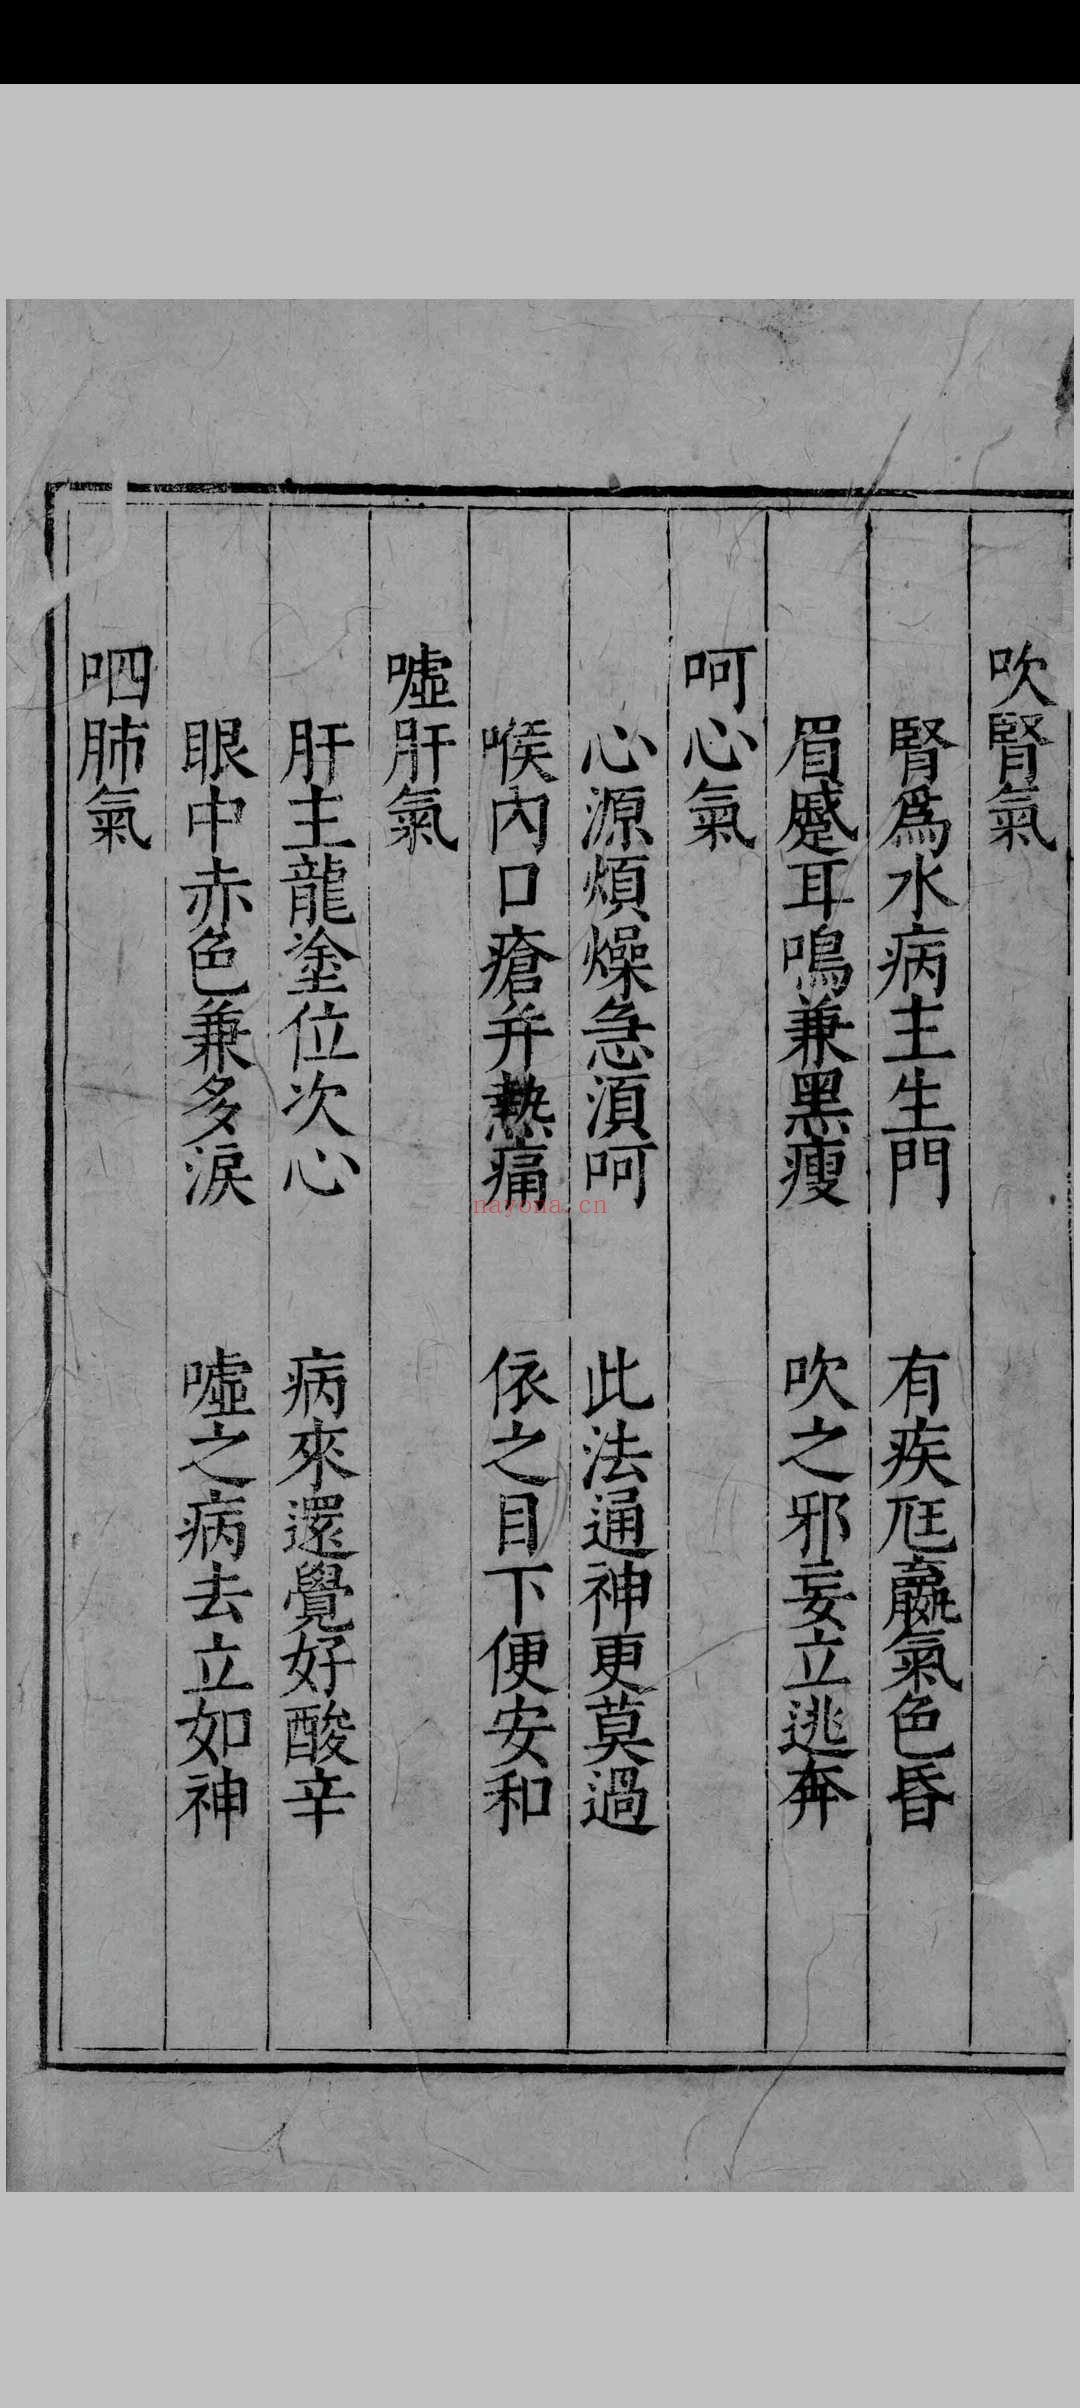 吹腎氣
腎爲水病主生門　有疾尫羸氣色昏
眉蹙耳鳴兼黑瘦　吹之邪妄立逃奔
呵心氣
心源煩燥急湏呵　此法通神更莫過
喉內口瘡并熱痛　依之目下便安和
噓肝氣
肝主龍塗位次心　病來還覺好酸辛
眼中赤色兼多淚　噓之病去立如神
呬肺氣
nayona.cn